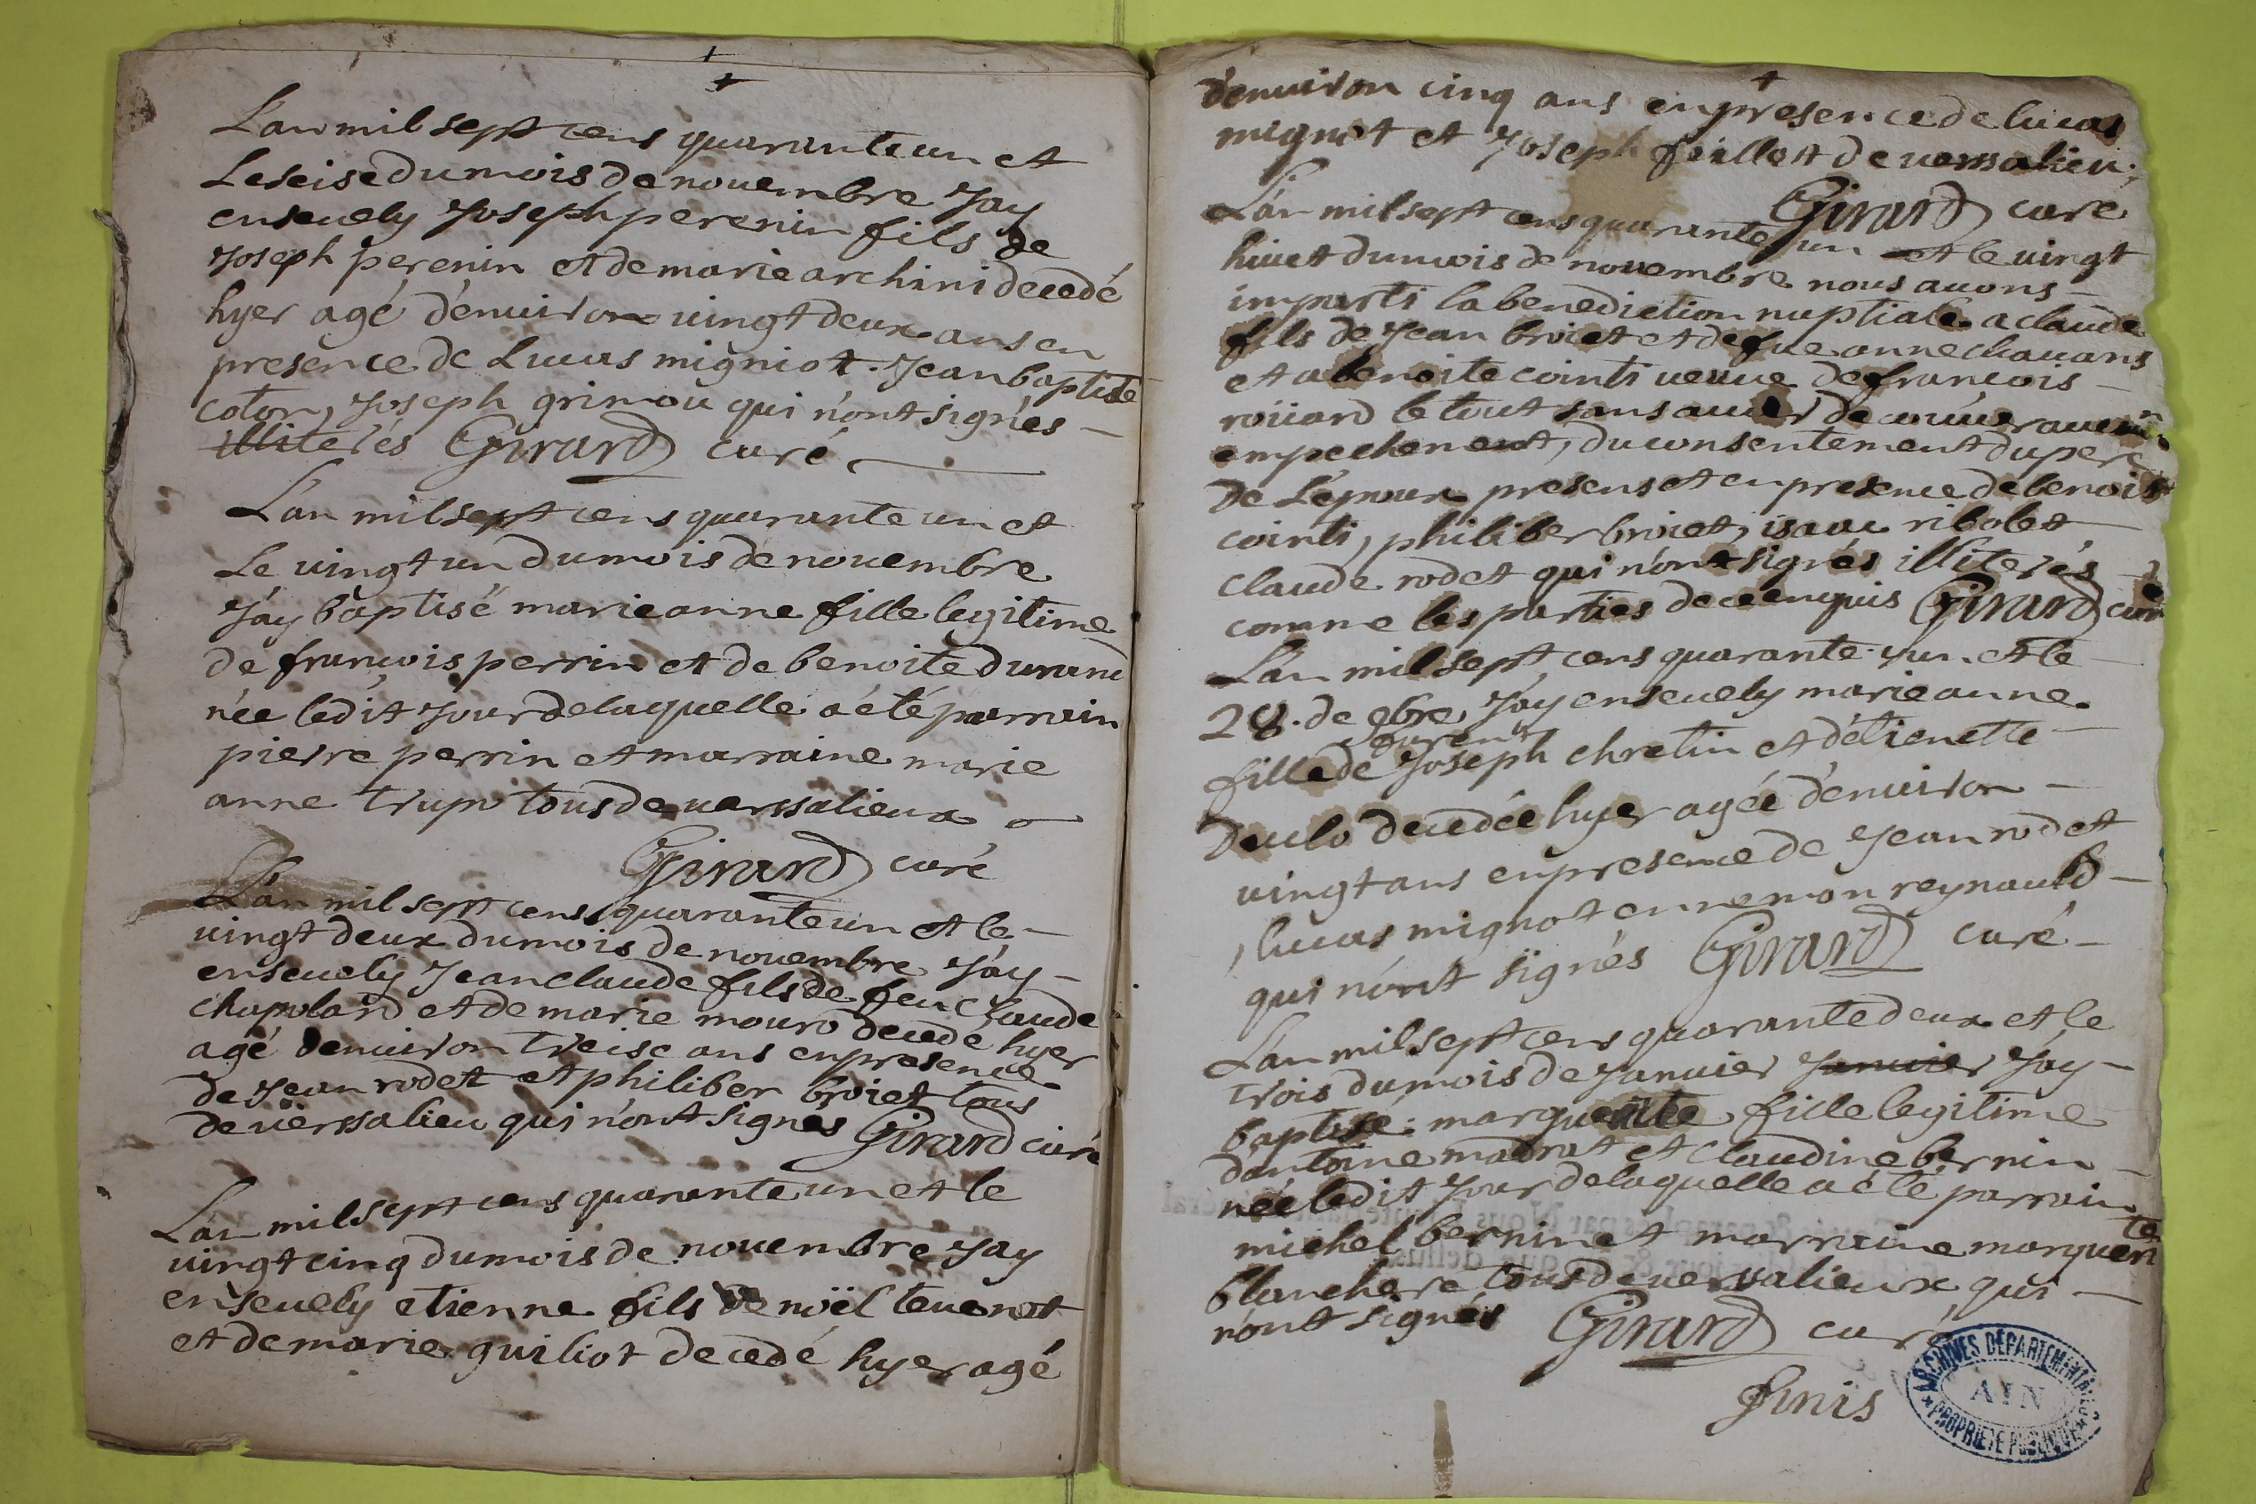 L'an mil sept cens quarante un et
Le seise du mois de novembre Jay
ensevely Joseph perenin fils de
Joseph perenin et de marie archini decedé
hyer agé d'environ vingt deux ans en
presence de Lucas migniot. Jean baptiste
coton, Joseph grimou qui n'ont signés
illiterés Girard curé
L'an mil sept cens quarante un et
Le vingt un du mois de novembre
J'ay baptisé marie anne fille legitime
de francois perrin et de benoite durand
née ledit Jour de laquelle a été parrain
pierre perrin et marraine marie
anne trupo tous de verssalieux
Girard curé
L'an mil sept cens quarante un et le
vingt deux du mois de novembre J'ay
ensevely Jean claude fils de feu Claude
chapolard et de marie mouro decedé hyer
agé d'environ treise ans en presence
de Jean rodet et philiber broiet tous
de verssalieu qui n'ont signés Girard curé
L'an mil sept cens quarante un et le
vingt cinq du mois de novembre Jay
ensevely etienne fils de noël tevenot
et de marie guiliot decedé hyer agé
d'environ cinq ans en presence de lucas
mignot et Joseph feullet de verssalieu,
Girard curé
L'an mil sept cens quarante un et le vingt
huiet du mois de novembre nous avons
imparti la benediction nuptiale a claude
fils de Jean broiet et de fue anne chavans
et a benoite cointi veuve de francois
roüard le tout sans avoir decouver aucun
empechement, du consentement du pere
de L'epoux presens et en presence de benoist
cointi, philiber broiet, isaac ribolet
claude rodet qui n'ont signés illiterés
comme les parties de ce enquis Girard curé
L'an mil sept cens quarante un. et le
28. de 9bre J'ay ensevely marie anne
fille de Joseph chretin et d'étienette
deculo decedée hyer agée d'environ
vingt ans en presence de Jean rodet
, lucas mignot ennemon reynauld
qui n'ont signés Girard curé
L'an mil sept cens quarante deux et le
trois du mois de Janvier Janvier J'ay
baptisé marguerite fille legitime
d'antoine madrat et Claudine bernin
née ledit Jour de laquelle a été parrain
michel bernin et marraine marguerite
blanchere tous de versalieux qui
n'ont signés Girard curé
finis
ARCHIVES DEPARTEMENTALES
AIN
PROPRIETE PUBLIQUE